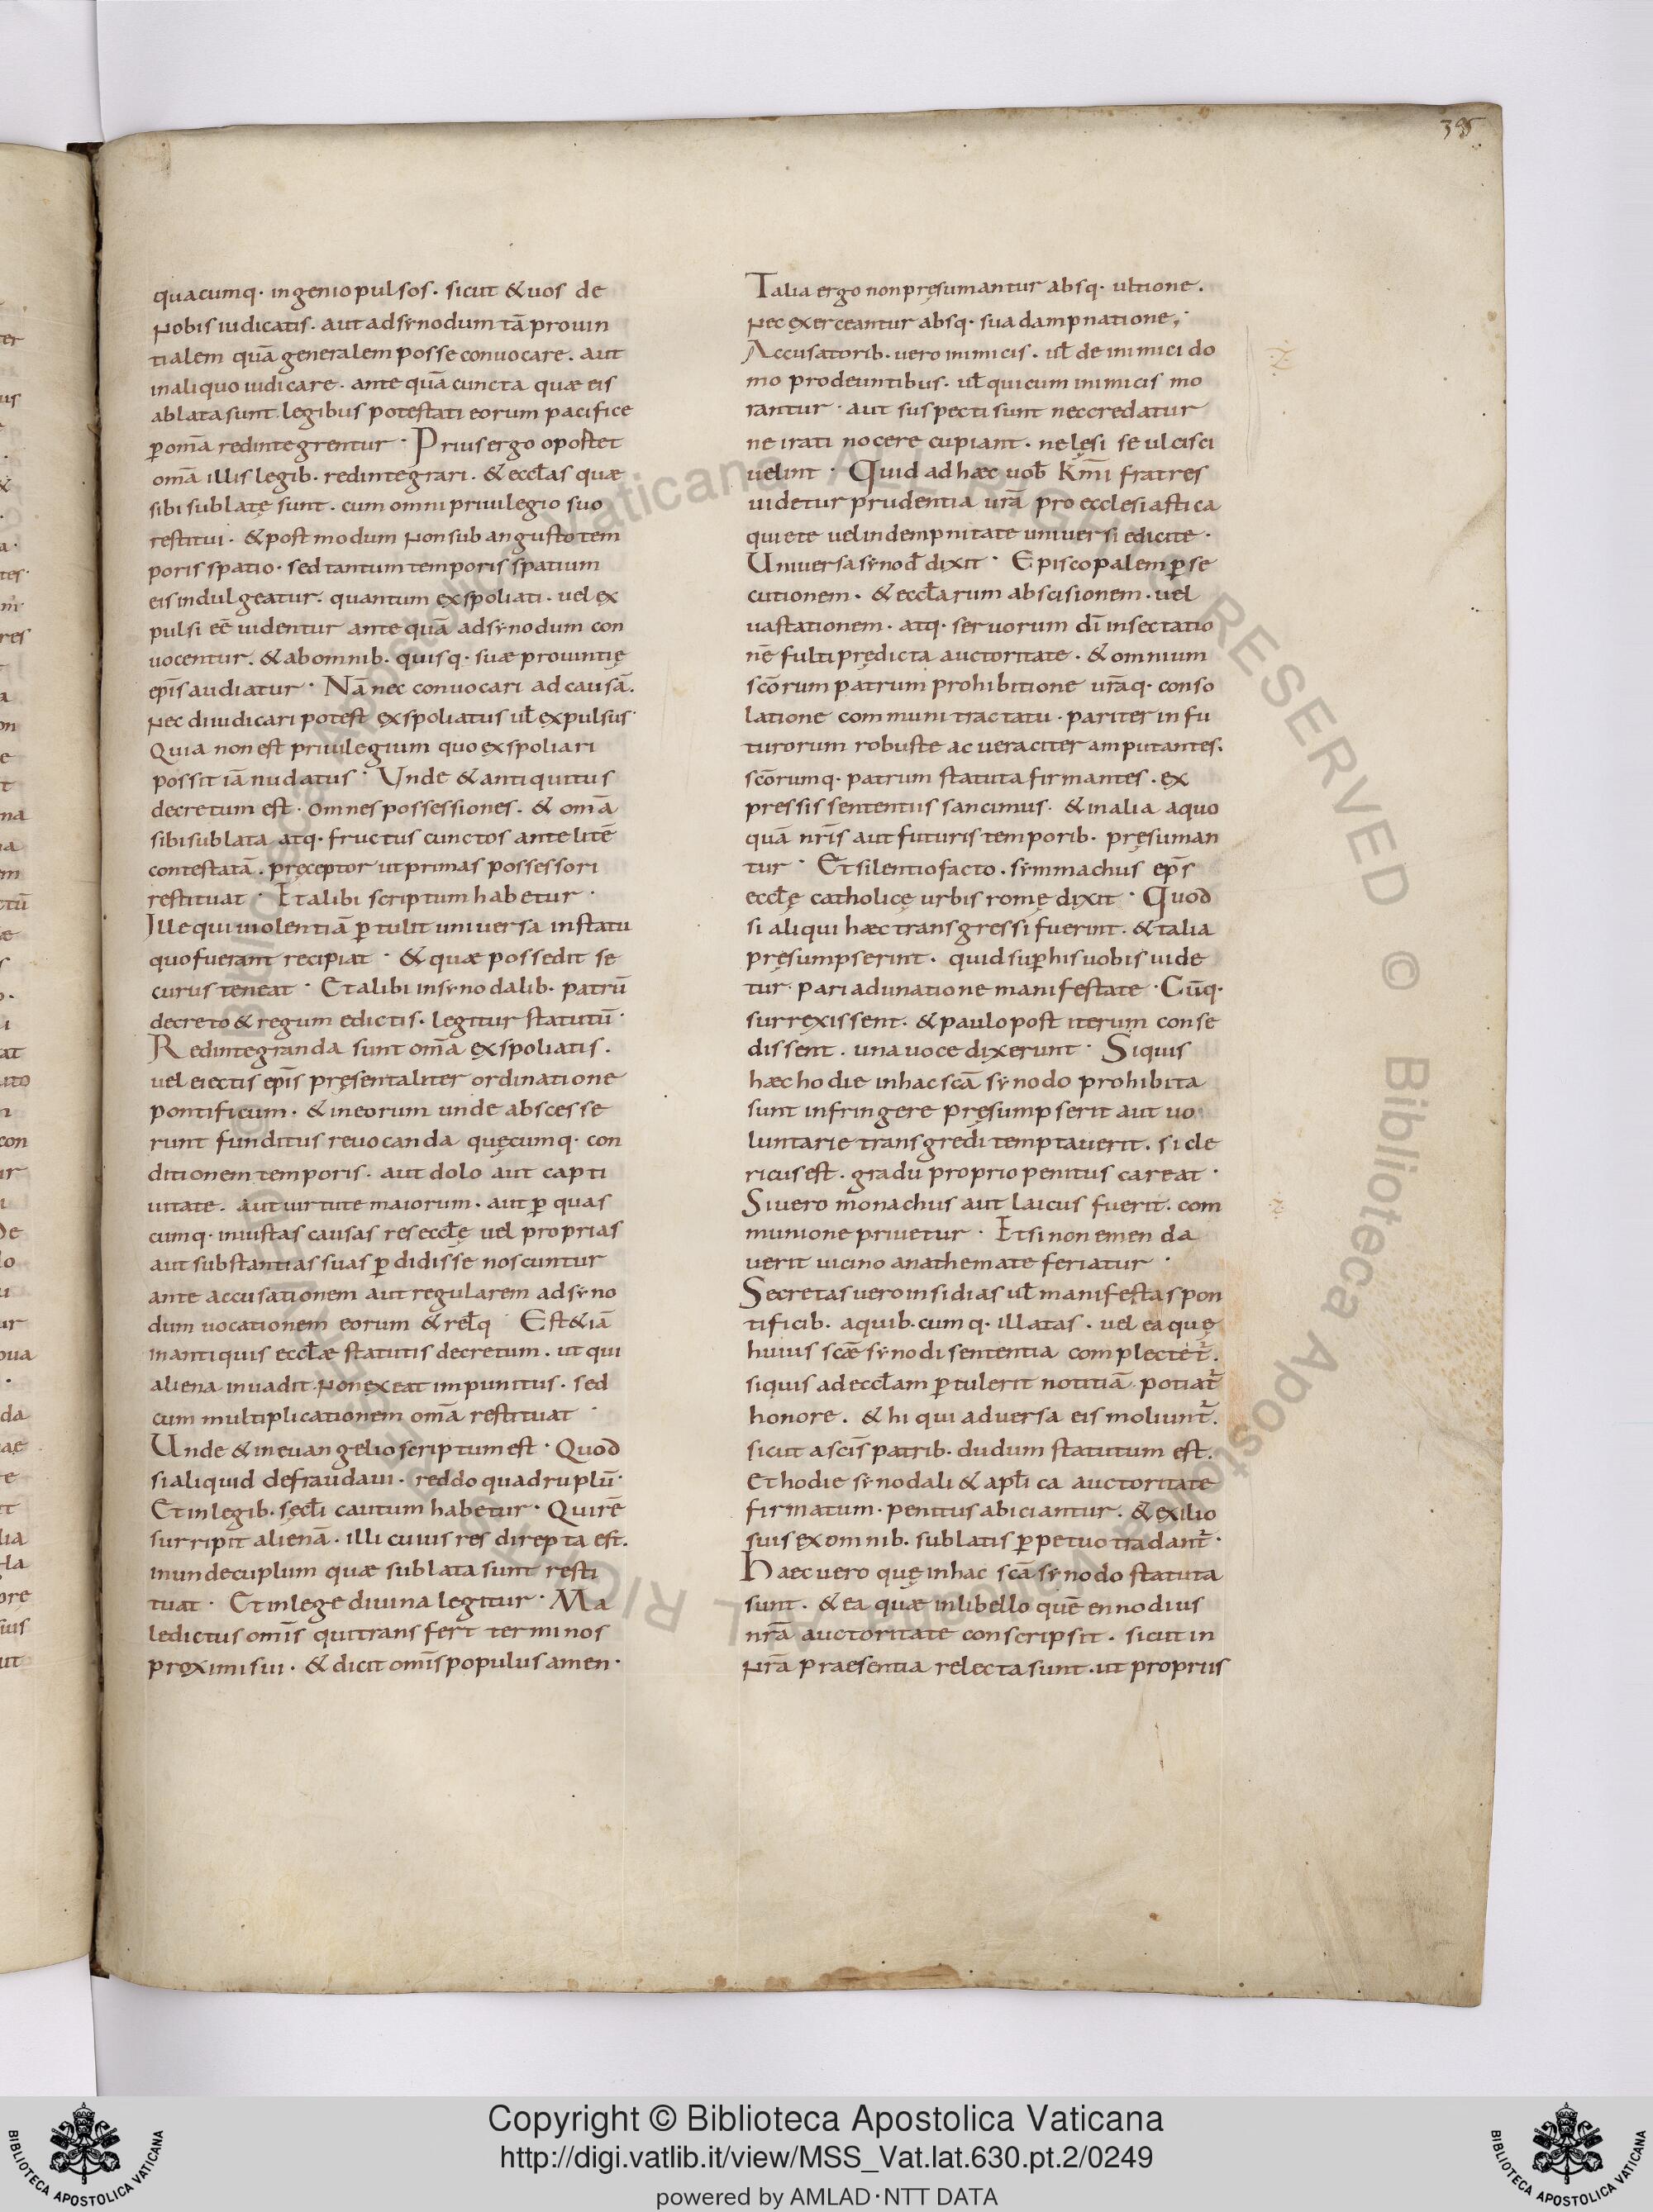 395
quacumq· ingenio pulsos. sicut & uos de
Nobis iudicatis. aut ad synodum tā prouin
tialem quā generalem posse conuocare. aut
in aliquo iudicare. ante quā cuncta quæ eis
ablata sunt legibus potestati eorum pacifice
p omā redintegrentur· Prius ergo opostet
omā illis legib· redintegrari. & eccłas quæ
sibi sublatę sunt. cum omni priuilegio suo
restitui. & post modum Non sub angusto tem
poris spatio. sed tantum temporis spatium
eis indulgeatur. quantum exspoliati. uel ex
pulsi eē uidentur ante quā ad synodum con
uocentur. & ab omnib. quisq· suæ prouintię
epīs audiatur· Nā nec conuocari ad causā.
Nec diiudicari potest exspoliatus uł expulsus·
Quia non est priuilegium quo exspoliari
possit iā nudatus· Unde & antiquitus
decretum est. omnes possessiones. & omā
sibi sublata atq· fructus cunctos ante litē
contestatā. pręceptor ut primas possessori
restituat· Et alibi scriptum habetur·
Ille qui uiolentiā ptulit uniuersa in statu
quo fuerant recipiat· & quæ possedit se
curus teneat· Et alibi in synodalib. patrū
decreto & regum edictis. legitur statutū·
Redintegranda sunt omā exspoliatis.
uel eiectis epīs pręsentaliter ordinatione
pontificum. & in eorum unde abscesse
runt funditus reuocanda quęcumq· con
ditionem temporis. aut dolo aut capti
uitate. aut uirtute maiorum. aut p quas
cumq· iniustas causas res eccłę uel proprias
aut substantias suas pdidisse noscuntur
ante accusationem aut regularem ad syno
dum uocationem eorum & relq Est & iā
in antiquis eccłæ statutis decretum. ut qui
aliena inuadit Non exeat impunitus. sed
cum multiplicationem omā restituat·
Unde & in euangelio scriptum est· Quod
si aliquid defraudaui. reddo quadruplū·
Et in legib. secłi cautum habetur· Qui rē
surripit alienā. illi cuius res direpta est.
in undecuplum quæ sublata sunt resti
tuat· Et in lege diuina legitur· Ma
ledictus omīs qui transfert terminos
proximi sui. & dicit omīs populus amen·
Talia ergo non pręsumantur absq· ultione.
Nec exerceantur absq· sua dampnatione;
Accusatorib. uero inimicis. uł de inimici do
mo prodeuntibus. uł qui cum inimicis mo
rantur· aut suspecti sunt nec credatur
ne irati nocere cupiant. ne lęsi se ulcisci
uelint· Quid ad hæc uob̄ Kmī fratres
uidetur prudentia urā pro ecclesiastica
quiete uel indempnitate uniuersi edicite·
Uniuersa synod̄ dixit· Episcopalem pse
cutionem. & eccłarum abscisionem. uel
uastationem. atq· seruorum dī insectatio
nē fulti prędicta auctoritate. & omnium
scōrum patrum prohibitione urāq· conso
latione communi tractatu. pariter in fu
turorum robuste ac ueraciter amputantes.
scōrumq· patrum statuta firmantes. ex
pressis sententiis sancimus. & in alia a quo
quā nrīs aut futuris temporib. pręsuman
tur· Et silentio facto. symmachus epīs
eccłę catholicę urbis romę dixit· Quod
si aliqui hæc transgressi fuerint. & talia
pręsumpserint. quid sup his uobis uide
tur. pari adunatione manifestate· Cūq·
surrexissent. & paulo post iterum conse
dissent. una uoce dixerunt· Si quis
hæc hodie in hac scā synodo prohibita
sunt infringere pręsumpserit aut uo
luntarie transgredi temptauerit. si cle
ricus est. gradu proprio penitus careat·
Si uero monachus aut laicus fuerit. com
munione priuetur· Et si non emenda
uerit uicino anathemate feriatur·
Secretas uero insidias uł manifestas pon
tificib. a quib.cumq· illatas. uel ea quę
huius scæ synodi sententia complectet̄.
si quis ad eccłam ptulerit notitiā potiat̄
honore. & hi qui aduersa eis moliunt̄.
sicut a scīs patrib. dudum statutum est.
Et hodie synodali & apłica auctoritate
firmatum. penitus abiciantur. & exilio
suis ex omnib. sublatis ppetuo tradant̄.
Haec uero quę in hac scā synodo statuta
sunt. & ea quæ in libello quē ennodius
nrā auctoritate conscripsit. sicut in
Nrā praesentia relecta sunt. ut propriis
Copyright © Biblioteca Apostolica Vaticana
http://digi.vatlib.it/view/MSS_Vat.lat.630.pt.2/0249
powered by AMLAD·NTT DATA
BIBLIOTECA APOSTOLICA VATICANA
BIBLIOTECA APOSTOLICA VATICANA